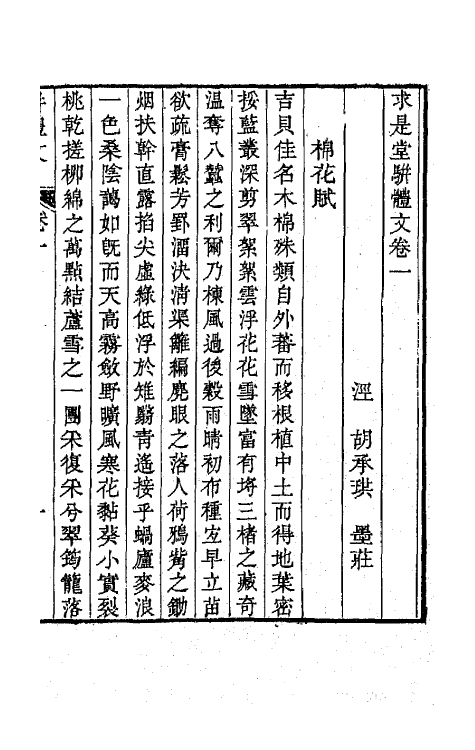 求是堂駢體文卷一
涇　胡承珙　墨莊
棉花賦
吉貝佳名木棉殊類自外蕃而移根植中土而得地葉密
挼藍叢深剪翠絮絮雲浮花花雪墜富有埒三楮之藏奇
溫奪八蠶之利爾乃楝風過後穀雨晴初布種宐早立苗
欲疏膏鬆芳罫溜決淸渠籬編麂眼之落人荷鴉觜之鋤
烟扶幹直露掐尖虛綠低浮於雉翳靑遙接乎蝸廬麥浪
一色桑陰藹如旣而天高霧斂野曠風寒花黏葵小實裂
桃乾搓柳綿之萬點結蘆雪之一團釆復釆兮翠筠籠落
卷一
一